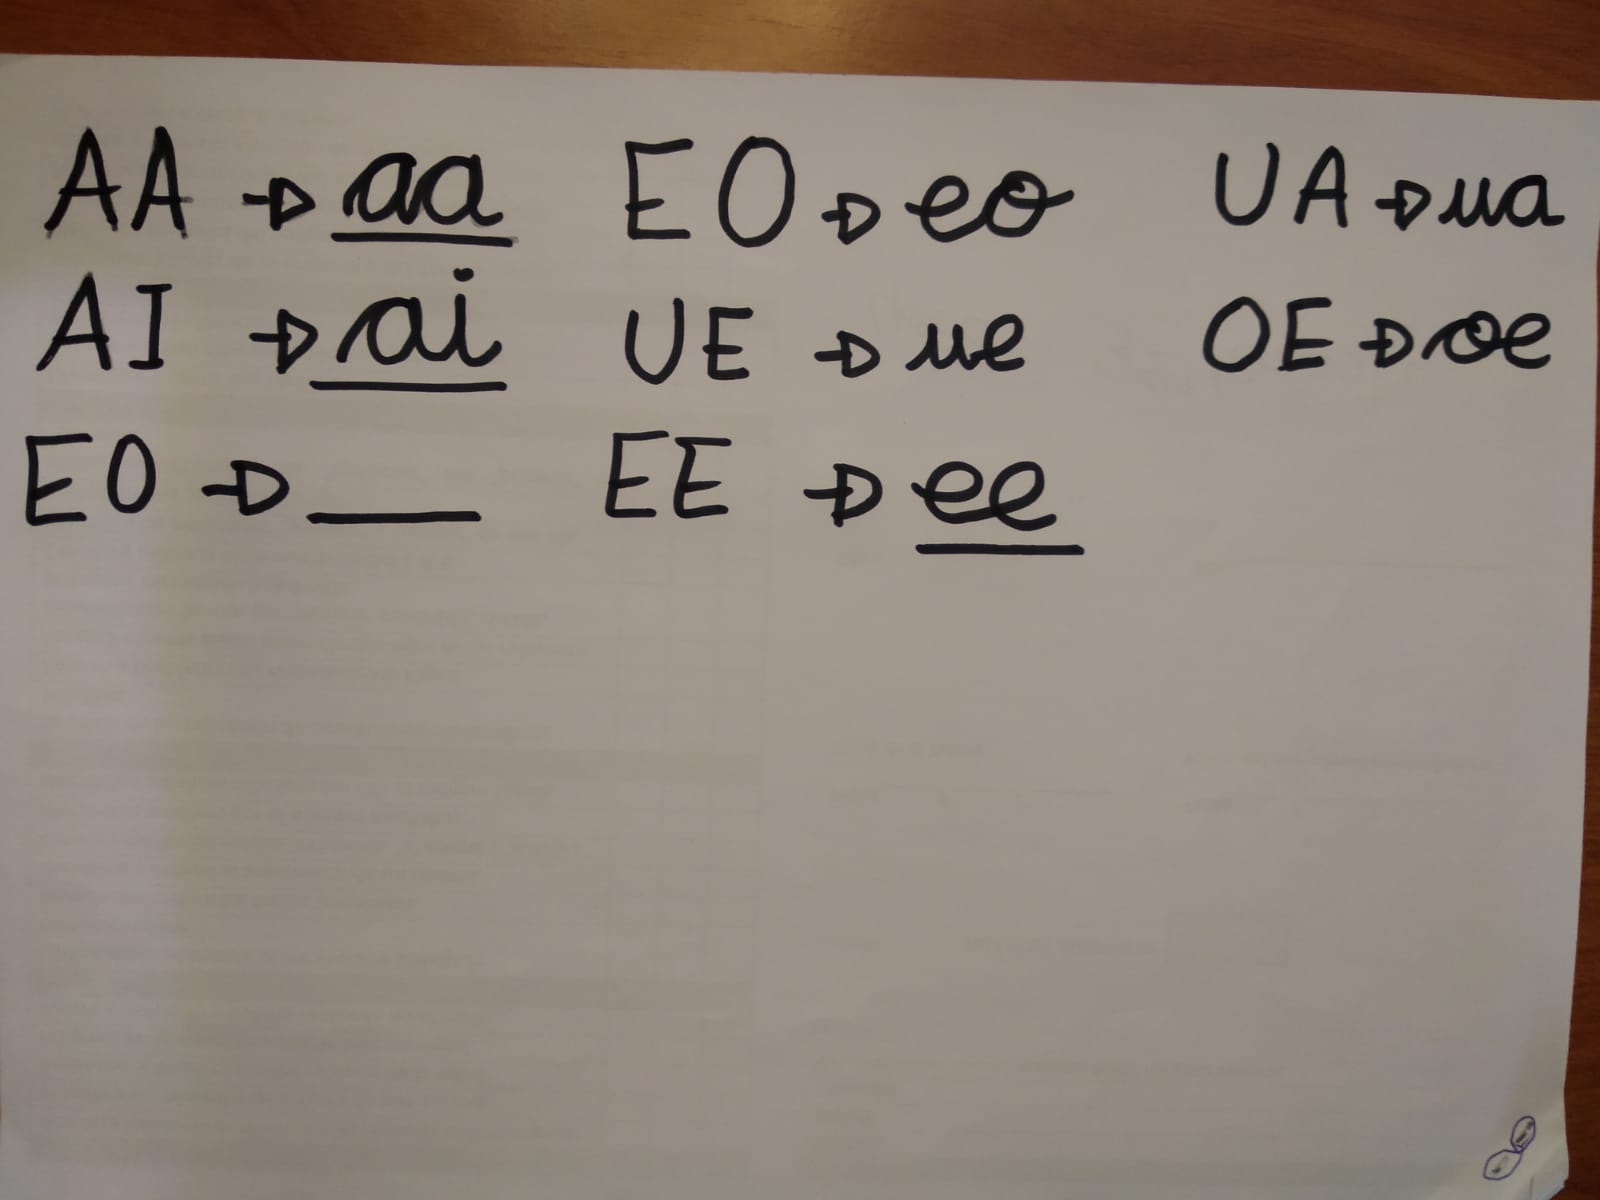 AA → aa EO → eo UA → ua
AI → ai UE → ue OE → oe
EO → ___ EE → ee